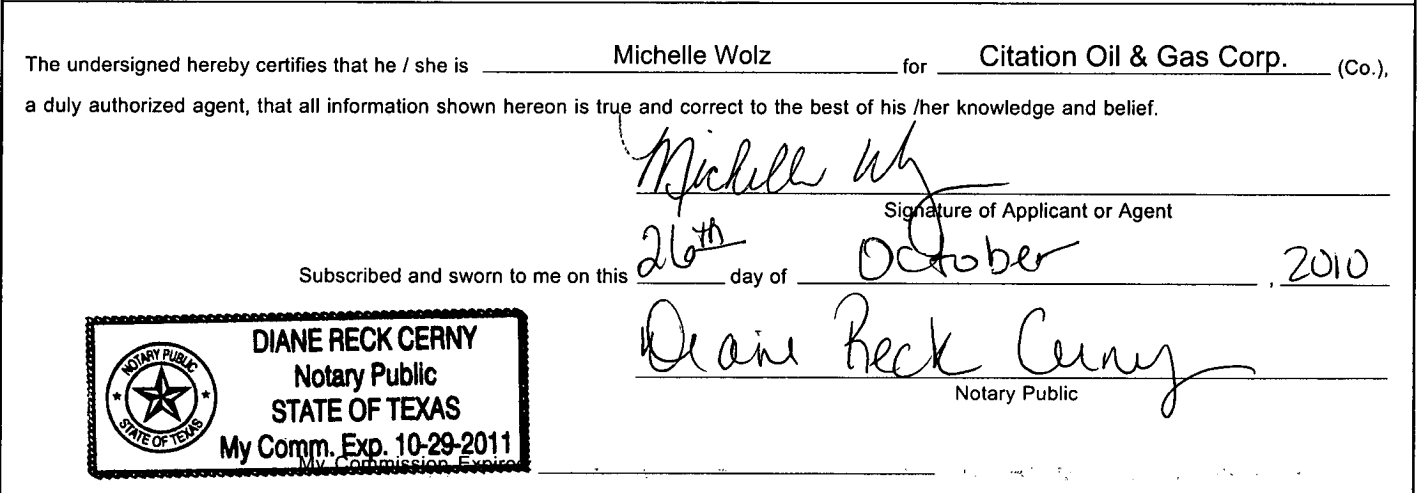 The undersigned hereby certifies that he / she is Michelle Wolz for Citation Oil & Gas Corp. (Co.),
a duly authorized agent, that all information shown hereon is true and correct to the best of his /her knowledge and belief.
Michelle Wolz
Signature of Applicant or Agent
Subscribed and sworn to me on this 26th day of October , 2010
Diane Reck Cerny
Notary Public
DIANE RECK CERNY
Notary Public
STATE OF TEXAS
My Comm. Exp. 10-29-2011
NOTARY PUBLIC
STATE OF TEXAS
My Commission Expires